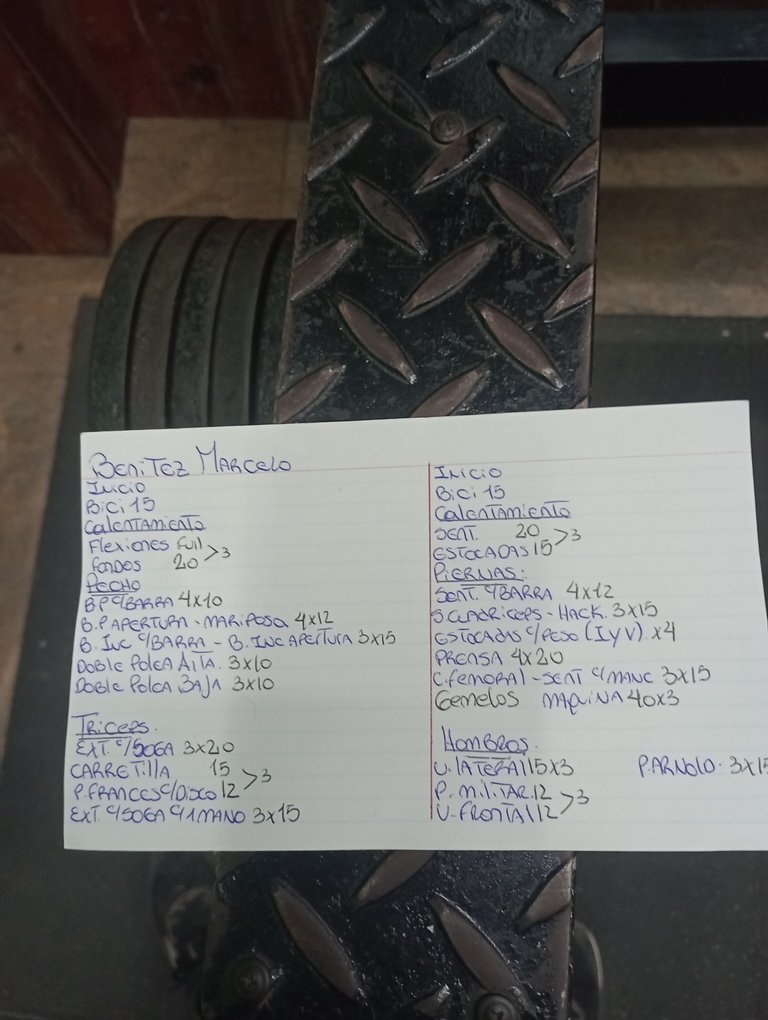 Benitez Marcelo
Inicio
Bici 15
Calentamiento
Flexiones full
Fondos 20 >3
Pecho
B.P c/Barra 4x10
B.P Apertura - Mariposa 4x12
B. Inc c/Barra - B. Inc Apertura 3x15
Doble Polea Alta. 3x10
Doble Polea Baja 3x10
Triceps.
Ext. c/Soga 3x20
Carretilla 15
P. Frances c/Disco 12 >3
Ext. c/Soga c/1 mano 3x15
Inicio
Bici 15
Calentamiento
Sent. 20
Estocadas 15 >3
Piernas:
Sent. c/Barra 4x12
S. Cuadriceps - Hack. 3x15
Estocadas c/Peso (I y V). x4
Prensa 4x20
C. Femoral - Sent c/Manc 3x15
Gemelos Maquina 40x3
Hombros.
V. Lateral 15x3 P. Arnold. 3x15
P. Militar 12
V. Frontal 12 >3